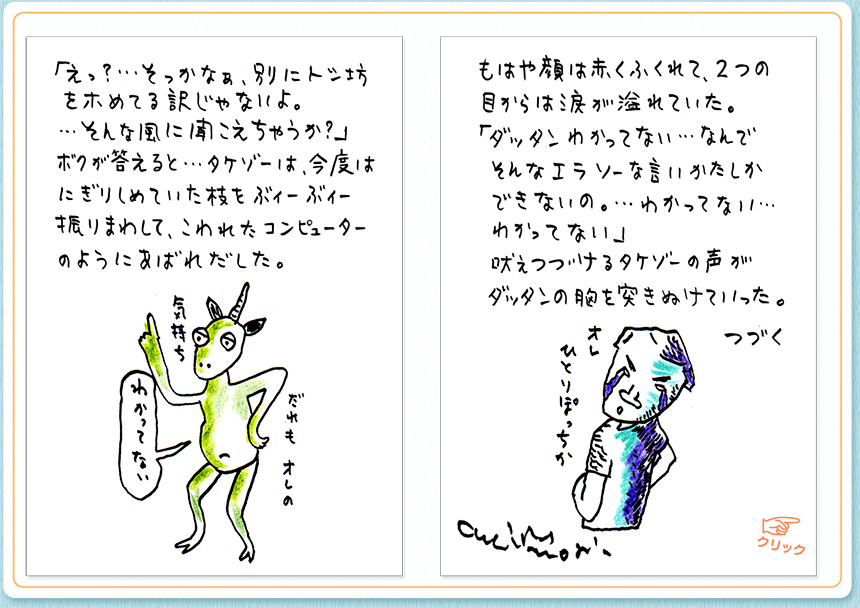 「えっ?…そっかなぁ、別にトン坊
をホめてる訳じゃないよ。
…そんな風に聞こえちゃうか?」
ボクが答えると…タケゾーは、今度は
にぎりしめていた枝をぶィーぶィー
振りまわして、こわれたコンピューター
のようにあばれだした。
気持ち
わかってない
だれも オレの
もはや顔は赤くふくれて、2つの
目からは涙が溢れていた。
「ダッタンわかってない…なんで
そんなエラソーな言いかたしか
できないの。…わかってない…
わかってない」
吠えつづけるタケゾーの声が
ダッタンの胸を突きぬけていった。
つづく
オレ
ひとりぽっちか
クリック